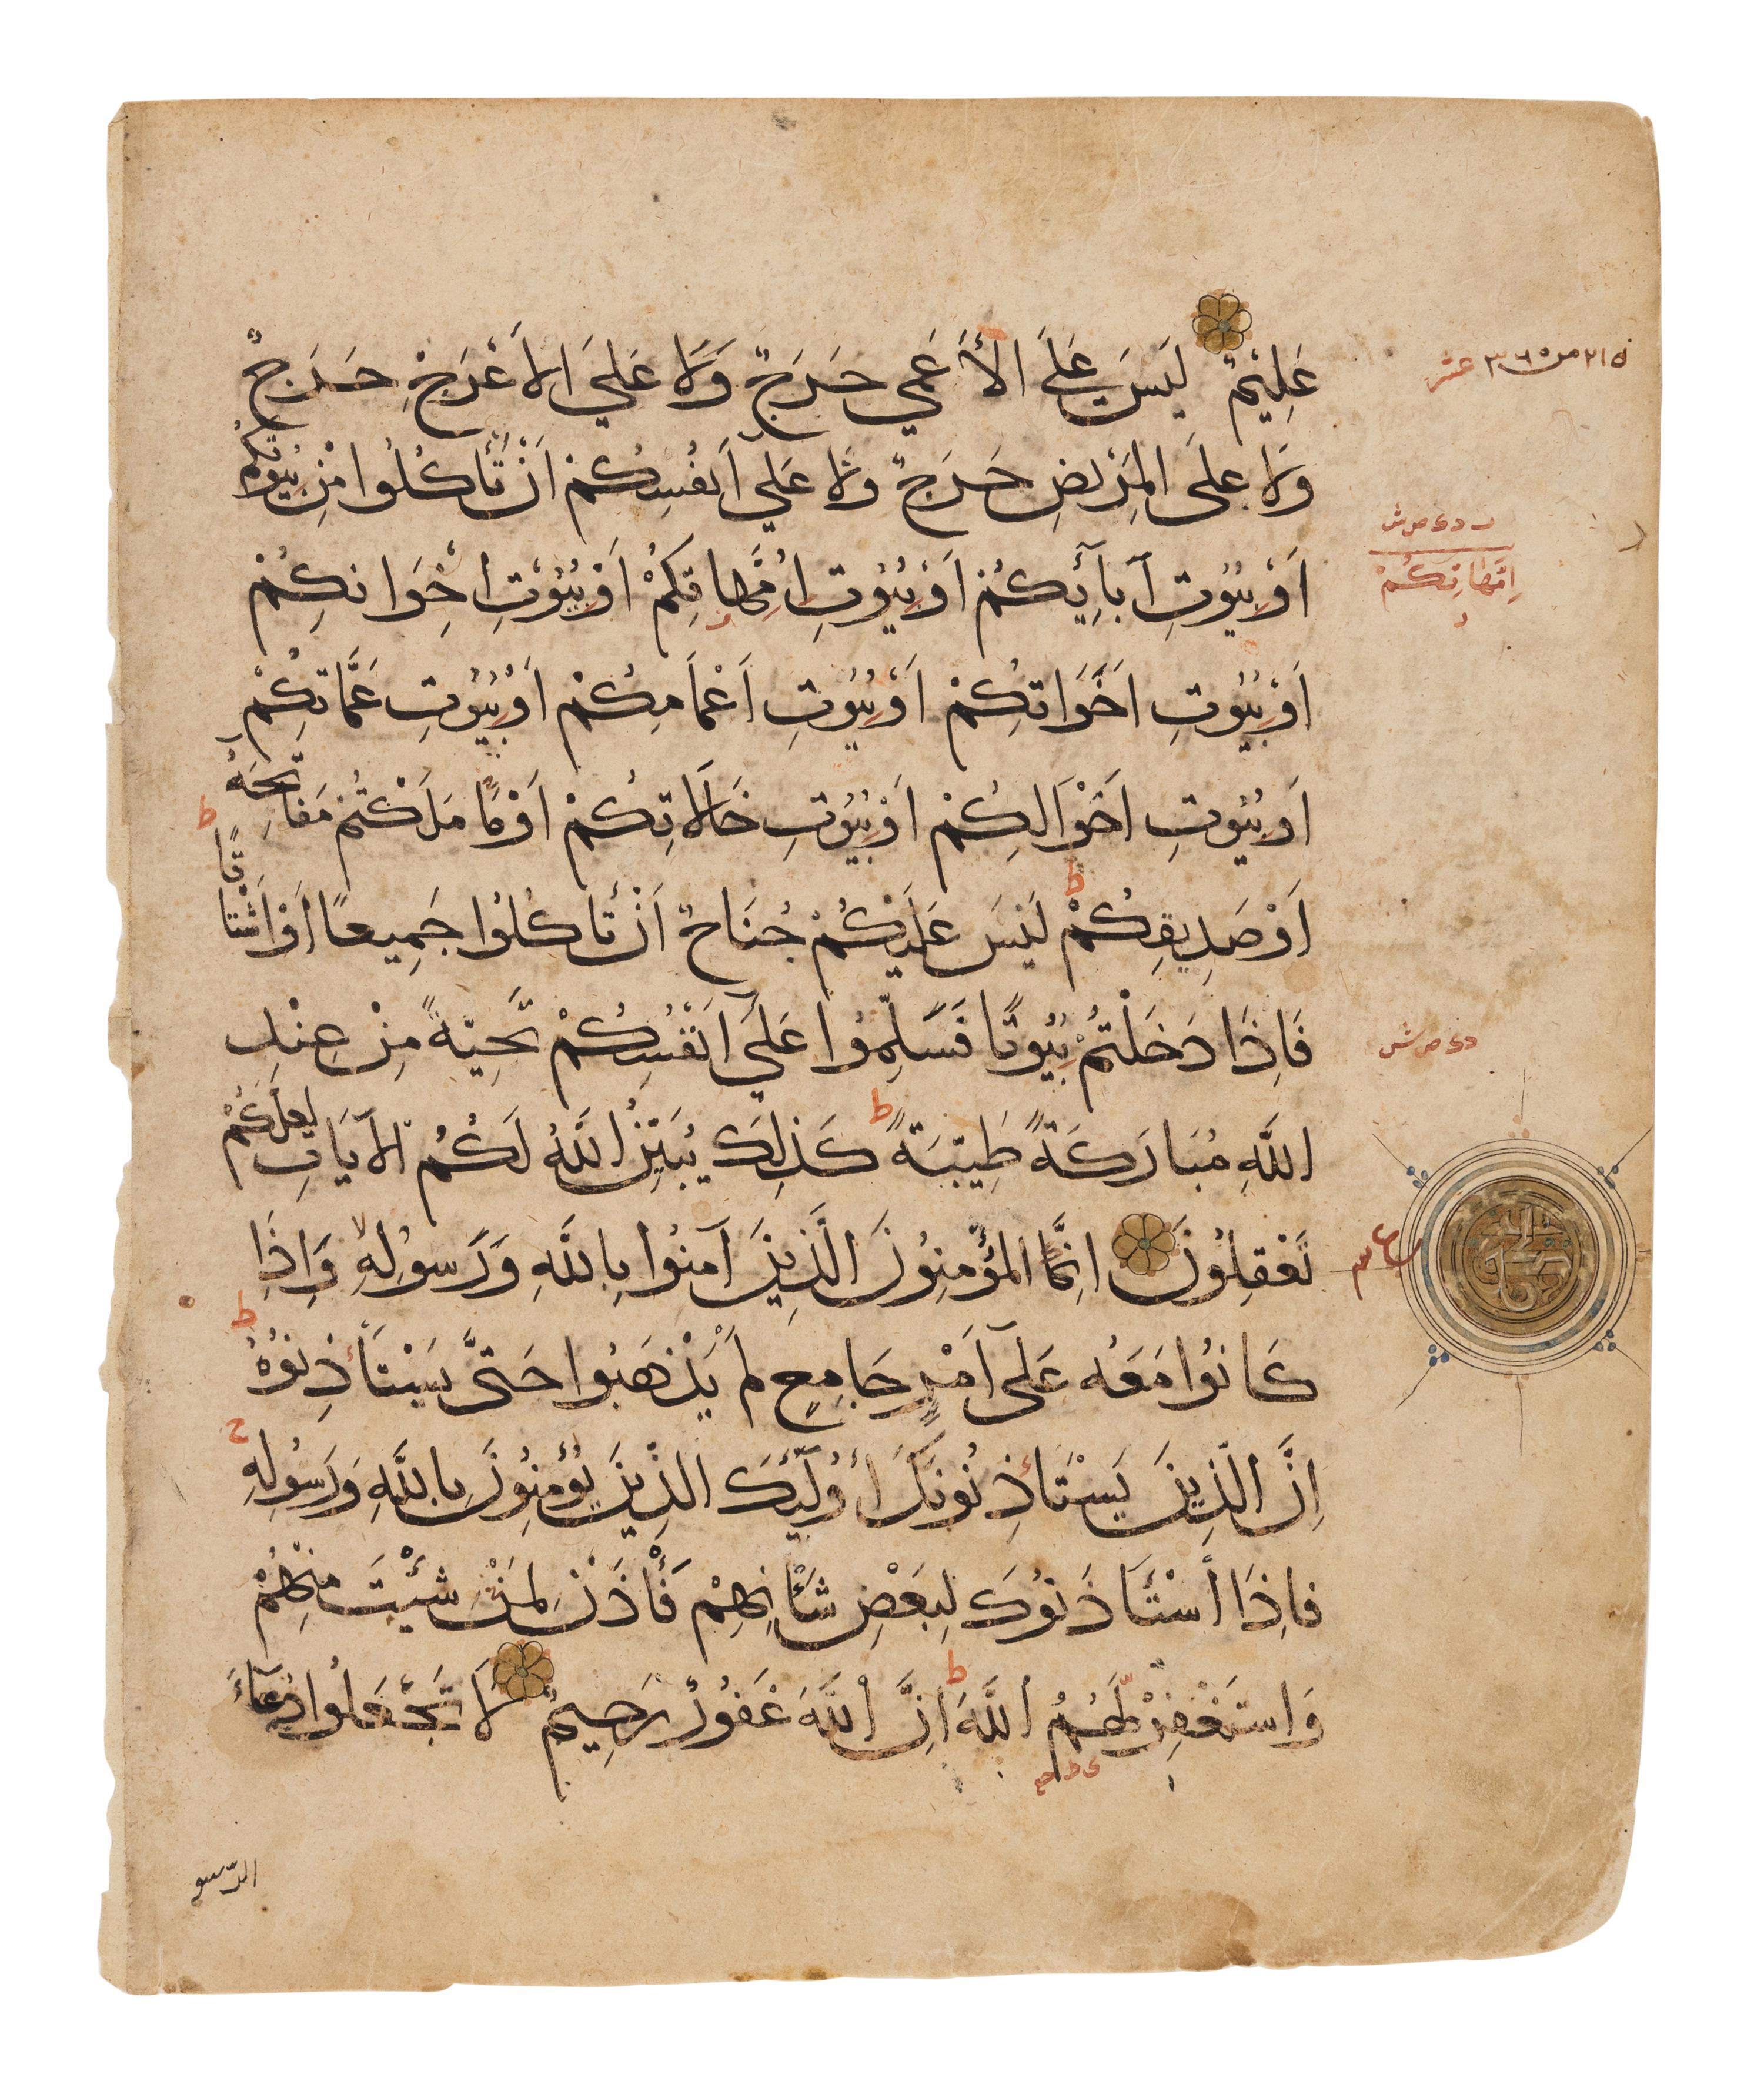 عَلِيمٌ لَيْسَ عَلَى الْأَعْمَى حَرَجٌ وَلَا عَلَى الْأَعْرَجِ حَرَجٌ
وَلَا عَلَى الْمَرِيضِ حَرَجٌ وَلَا عَلَى أَنْفُسِكُمْ أَنْ تَأْكُلُوا مِنْ بُيُوتِكُمْ
أَوْ بُيُوتِ آبَآئِكُمْ أَوْ بُيُوتِ أُمَّهَاتِكُمْ أَوْ بُيُوتِ إِخْوَانِكُمْ
إِمَّهَاتِكُمْ
أَوْ بُيُوتِ أَخَوَاتِكُمْ أَوْ بُيُوتِ أَعْمَامِكُمْ أَوْ بُيُوتِ عَمَّاتِكُمْ
أَوْ بُيُوتِ أَخْوَالِكُمْ أَوْ بُيُوتِ خَالَاتِكُمْ أَوْ مَا مَلَكْتُمْ مَفَاتِحَهُ ط
أَوْ صَدِيقِكُمْ ط لَيْسَ عَلَيْكُمْ جُنَاحٌ أَنْ تَأْكُلُوا جَمِيعًا أَوْ أَشْتَاتًا
فَإِذَا دَخَلْتُمْ بُيُوتًا فَسَلِّمُوا عَلَى أَنْفُسِكُمْ تَحِيَّةً مِنْ عِنْدِ
اللَّهِ مُبَارَكَةً طَيِّبَةً ط كَذَلِكَ يُبَيِّنُ اللَّهُ لَكُمُ الْآيَاتِ لَعَلَّكُمْ
تَعْقِلُونَ إِنَّمَا الْمُؤْمِنُونَ الَّذِينَ آمَنُوا بِاللَّهِ وَرَسُولِهِ وَإِذَا
كَانُوا مَعَهُ عَلَى أَمْرٍ جَامِعٍ لَمْ يَذْهَبُوا حَتَّى يَسْتَأْذِنُوهُ ط
إِنَّ الَّذِينَ يَسْتَأْذِنُونَكَ أُولَئِكَ الَّذِينَ يُؤْمِنُونَ بِاللَّهِ وَرَسُولِهِ ج
فَإِذَا اسْتَأْذَنُوكَ لِبَعْضِ شَأْنِهِمْ فَأْذَنْ لِمَنْ شِئْتَ مِنْهُمْ
وَاسْتَغْفِرْ لَهُمُ اللَّهَ ط إِنَّ اللَّهَ غَفُورٌ رَحِيمٌ لَا تَجْعَلُوا دُعَآءَ
الرسو